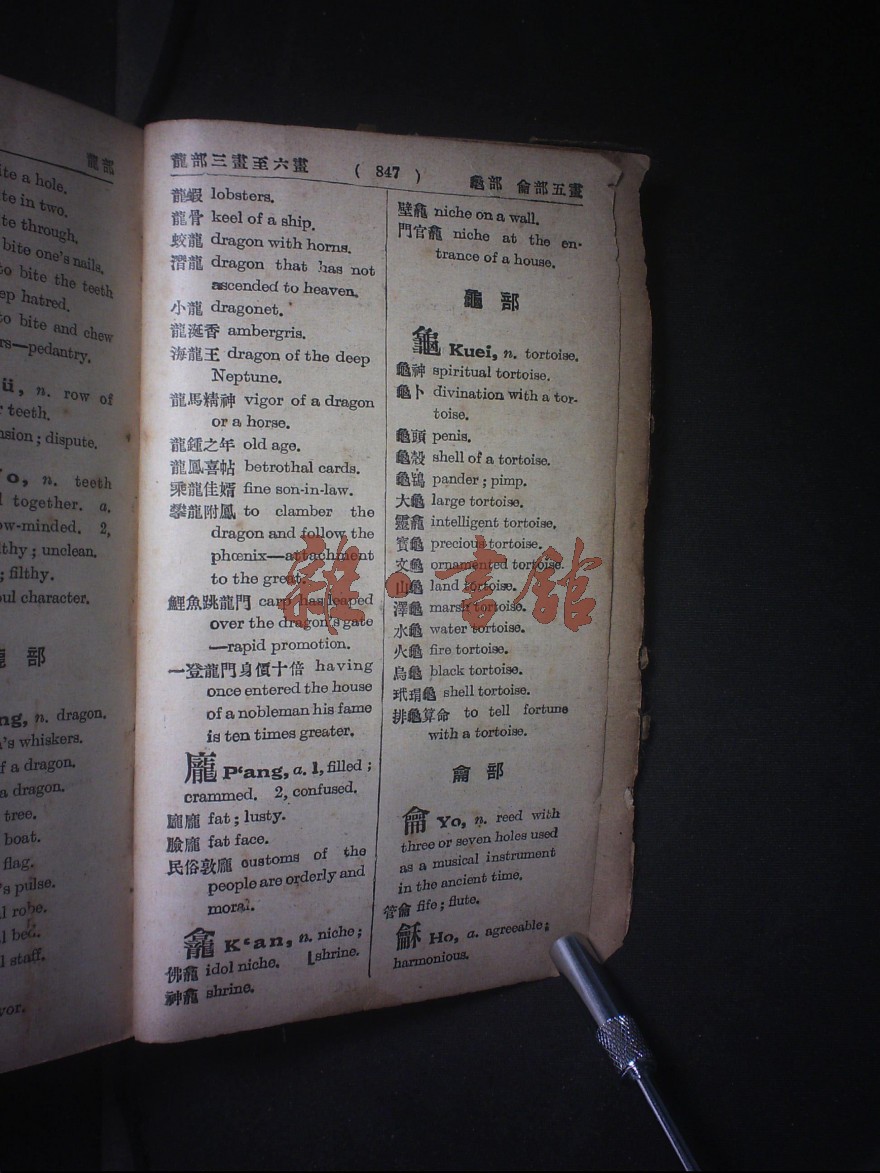 龍部
ite a hole.
te in two.
te through.
bite one's nails.
to bite the teeth
ep hatred.
to bite and chew
rs—pedantry.
n. row of
teeth.
nsion; dispute.
n. teeth
together. a.
ow-minded. 2,
lthy; unclean.
; filthy.
oul character.
部
ng, n. dragon.
n's whiskers.
f a dragon.
a dragon.
tree.
boat.
flag.
's pulse.
l robe.
l bed.
l staff.
vor.
龍部三畫至六畫 ( 847 ) 龜部 龠部五畫
龍蝦 lobsters.
龍骨 keel of a ship.
蛟龍 dragon with horns.
潛龍 dragon that has not
ascended to heaven.
小龍 dragonet.
龍涎香 ambergris.
海龍王 dragon of the deep
Neptune.
龍馬精神 vigor of a dragon
or a horse.
龍鍾之年 old age.
龍鳳喜帖 betrothal cards.
乘龍佳婿 fine son-in-law.
攀龍附鳳 to clamber the
dragon and follow the
phœnix—attachment
to the great.
鯉魚跳龍門 carp has leaped
over the dragon's gate
—rapid promotion.
一登龍門身價十倍 having
once entered the house
of a nobleman his fame
is ten times greater.
龐 P‘ang, a. 1, filled;
crammed. 2, confused.
龐 fat; lusty.
臉龐 fat face.
民俗敦龐 customs of the
people are orderly and
moral.
龕 K‘an, n. niche;
佛龕 idol niche. [shrine.
神龕 shrine.
壁龕 niche on a wall.
門官龕 niche at the en-
trance of a house.
龜部
龜 Kuei, n. tortoise.
龜神 spiritual tortoise.
龜卜 divination with a tor-
toise.
龜頭 penis.
龜殼 shell of a tortoise.
龜鴇 pander; pimp.
大龜 large tortoise.
靈龜 intelligent tortoise.
寶龜 precious tortoise.
文龜 ornamented tortoise.
山龜 land tortoise.
澤龜 marsh tortoise.
水龜 water tortoise.
火龜 fire tortoise.
烏龜 black tortoise.
玳瑁龜 shell tortoise.
排龜算命 to tell fortune
with a tortoise.
龠部
龠 Yo, n. reed with
three or seven holes used
as a musical instrument
in the ancient time.
管龠 fife; flute.
龢 Ho, a. agreeable;
harmonious.
雜·書館